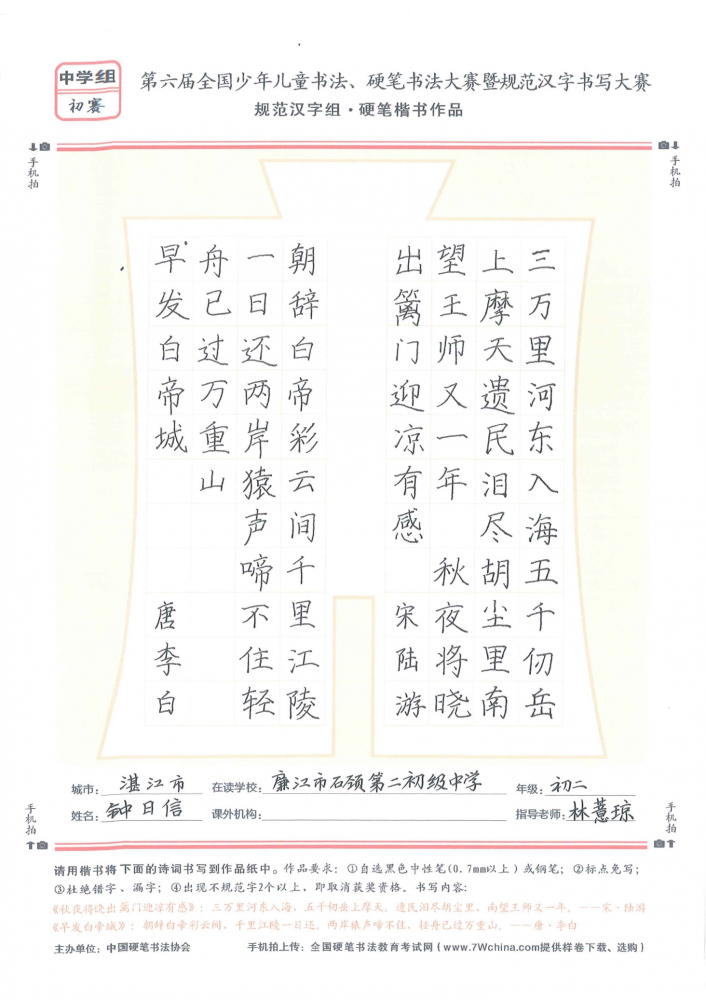 中学组
初赛
第六届全国少年儿童书法、硬笔书法大赛暨规范汉字书写大赛
规范汉字组·硬笔楷书作品
手机拍
手机拍
三万里河东入海五千仞岳
上摩天遗民泪尽胡尘里南
望王师又一年 秋夜将晓
出篱门迎凉有感 宋陆游
朝辞白帝彩云间千里江陵
一日还两岸猿声啼不住轻
舟已过万重山
早发白帝城 唐李白
城市：湛江市 在读学校：廉江市石颈第二初级中学 年级：初二
姓名：钟日信 课外机构： 指导老师：林薏琼
手机拍
手机拍
请用楷书将下面的诗词书写到作品纸中。作品要求：①自选黑色中性笔(0.7mm以上)或钢笔；②标点免写；
③杜绝错字、漏字；④出现不规范字2个以上，即取消获奖资格。书写内容：
《秋夜将晓出篱门迎凉有感》：三万里河东入海，五千仞岳上摩天。遗民泪尽胡尘里，南望王师又一年。——宋·陆游
《早发白帝城》：朝辞白帝彩云间，千里江陵一日还。两岸猿声啼不住，轻舟已过万重山。——唐·李白
主办单位：中国硬笔书法协会 手机拍上传：全国硬笔书法教育考试网（www.7Wchina.com提供样卷下载、选购）